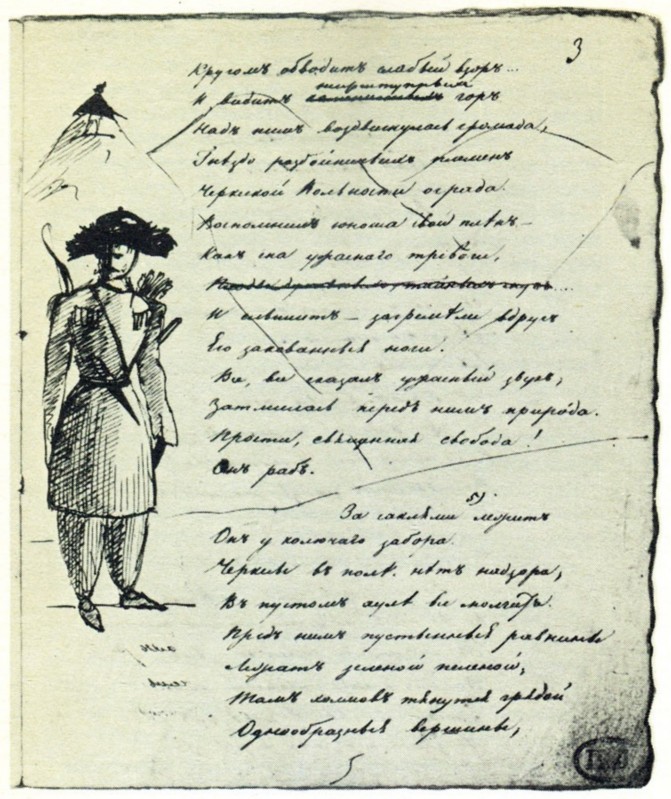 3
Кругомъ обводитъ слабый взоръ...
неприступныхъ
И видитъ горъ
Надъ нимъ воздвигнулась громада,
Гнѣздо разбойничьихъ племенъ
Черкеской Вольности ограда.
Воспомнилъ юноша свой плѣнъ —
Какъ сна ужаснаго тревоги,
И слышитъ — загремѣли вдругъ
Его закованныя ноги.
Все, все сказалъ ужасный звукъ,
Затмилась передъ нимъ природа.
Прости, священная свобода!
Онъ рабъ.
За саклями 5) лежитъ
Онъ у колючаго забора.
Черкесы въ полѣ. нѣтъ надзора,
Въ пустомъ аулѣ все молчитъ.
Предъ нимъ пустынныя равнины
Лежатъ зеленой пеленой,
Тамъ холмовъ тянутся грядой
Однообразныя вершины,